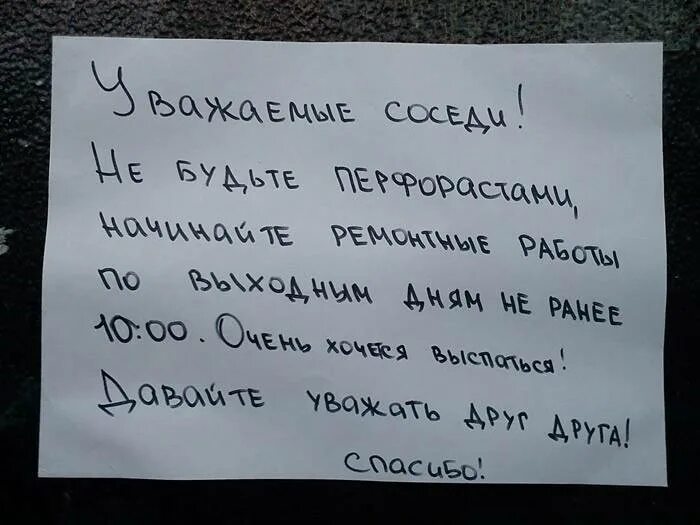 Уважаемые соседи!
Не будьте перфорастами,
начинайте ремонтные работы
по выходным дням не ранее
10:00. Очень хочется выспаться!
Давайте уважать друг друга!
Спасибо!